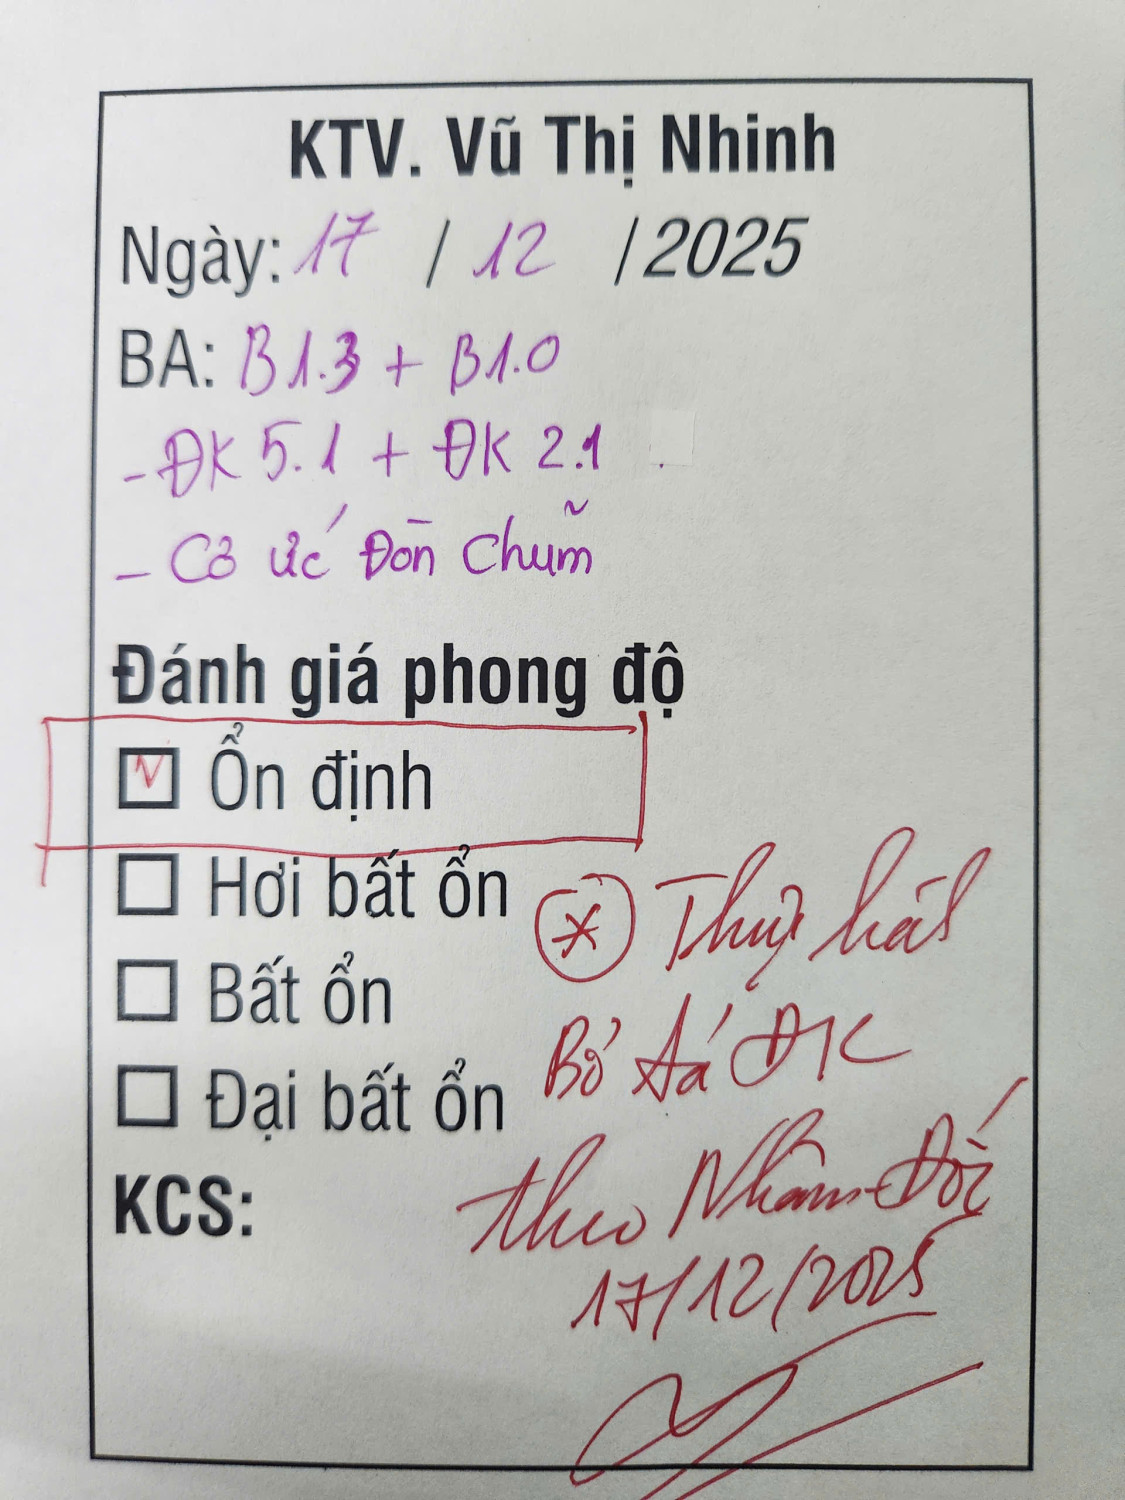 KTV. Vũ Thị Nhinh
Ngày: 17 / 12 / 2025
BA: B1.3 + B1.0
- ĐK 5.1 + ĐK 2.1
- Cô ức Đòn Chũm
Đánh giá phong độ
Ổn định
Hơi bất ổn
Bất ổn
Đại bất ổn
KCS:
Bỏ ĐK
theo Nhân
17/12/2025